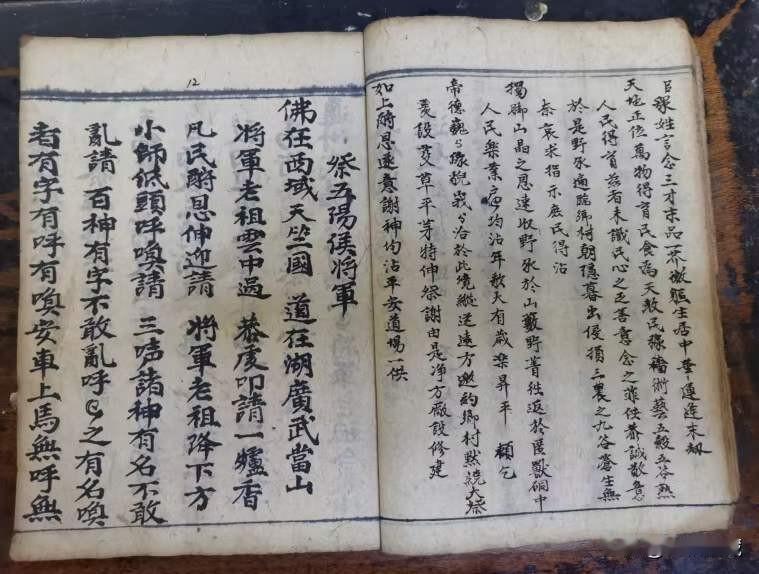 臣眾姓言念三才末品一芥微軀生居中華運逢末刼
天地正位萬物得育民食為天敢民緣禱術藝五穀五谷熟
人民得育茲者未識民心之乏善意念之菲怯恭誠敬意
於是野豕遍臨鄉村朝隱暮出侵損三農之九谷蒼生無
奈哀求指示庶民得沾
獨腳山晶之恩速收野豕於山藪野菁徃返於匿獸硐中
人民樂業戶均沾年敷大有歲樂昇平 賴乞
帝德巍々緣掜峩々洽於此境縱送遠方邀約鄉村默繞大祭
爰設芟草平芽特伸祭謝由是净方廠設修建
如上酧恩速意謝神均沾平安道場一供
祭五陽侯將軍
佛在西域天竺國 道在湖廣武當山
將軍老祖雲中過 恭虔叩請一爐香
凡民酧恩伸迎請 將軍老祖降下方
小師低頭呼喚請 三啓諸神有名不敢
亂請 百神有字不敢亂呼々之有名喚
者有字有呼有喚安車上馬無呼無
12